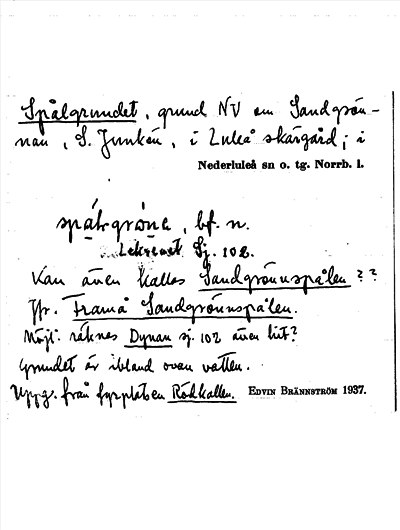 Spålgrundet, grund NV om Sandgrön-
nan, S. Junkön, i Luleå skärgård; i
Nederluleå sn o. tg. Norrb. l.
bf. n.
Sj. 102.
Kan även kallas Sandgrönnspålen??
Jfr. Framå Sandgrönnspålen.
Möjl. räknes Dynan sj. 102 även hit?
Grundet är ibland ovan vatten.
Uppg. från fyrplatsen Rödkallen. EDVIN BRÄNNSTRÖM 1937.